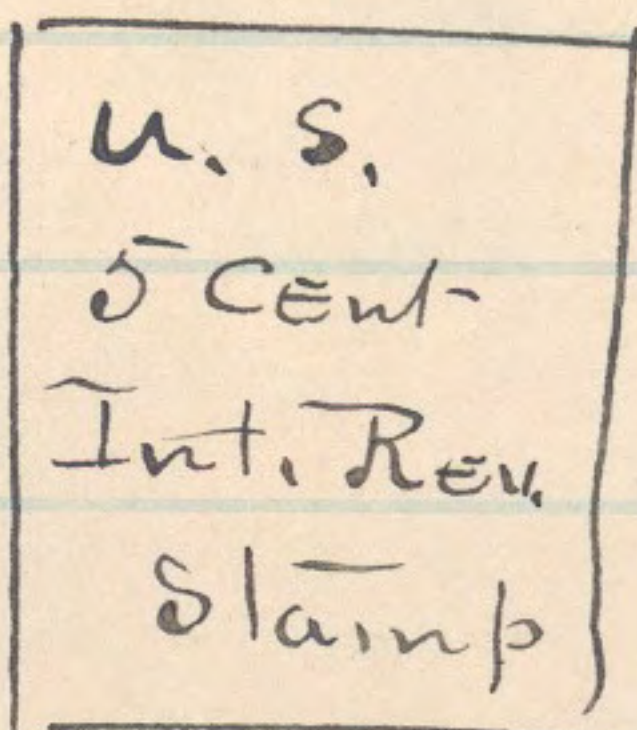 U. S.
5 Cent
Int. Rev.
Stamp